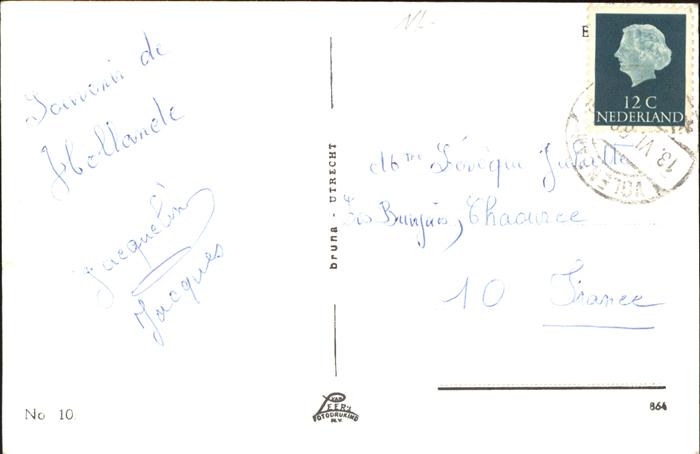 Souvenir de
Hollande
Jacqueline
Jacques
bruna - UTRECHT
NL-
E
12 C
NEDERLAND
13. VI
Mme Lévêque
Les Bungais, Chaource
10 France
No 10.
VAN
LEER'S
FOTODRUKIND
N.V.
864